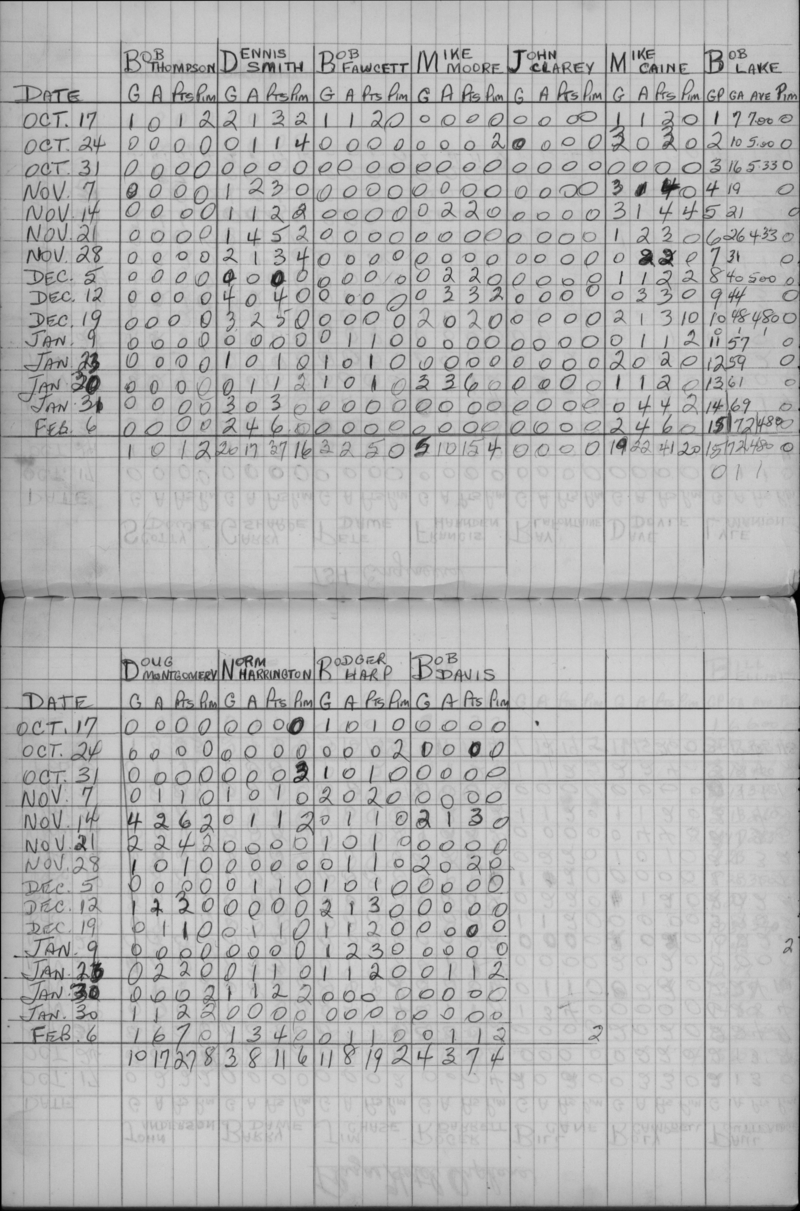 BOB THOMPSON DENNIS SMITH BOB FAWCETT MIKE MOORE JOHN CLAREY MIKE CAINE BOB LAKE
DATE G A Pts Pim G A Pts Pim G A Pts Pim G A Pts Pim G A Pts Pim G A Pts Pim GP GA AVE Pim
OCT. 17 1 0 1 2 2 1 3 2 1 1 2 0 0 0 0 0 0 0 0 0 1 1 2 0 1 7 7.00 0
OCT. 24 0 0 0 0 0 1 1 4 0 0 0 0 0 0 0 2 0 0 0 0 2 0 2 0 2 10 5.00 0
OCT. 31 0 0 0 0 0 0 0 0 0 0 0 0 0 0 0 0 0 0 0 0 0 0 0 0 3 16 5.33 0
NOV. 7 0 0 0 0 1 2 3 0 0 0 0 0 0 0 0 0 0 0 0 0 3 1 4 0 4 19 0
NOV. 14 0 0 0 0 1 1 2 2 0 0 0 0 0 2 2 0 0 0 0 0 3 1 4 4 5 21 0
NOV. 21 0 0 0 0 1 4 5 2 0 0 0 0 0 0 0 0 0 0 0 0 1 2 3 0 6 26 4.33 0
NOV. 28 0 0 0 0 2 1 3 4 0 0 0 0 0 0 0 0 0 0 0 0 0 2 2 0 7 31 0
DEC. 5 0 0 0 0 0 0 0 0 0 0 0 0 0 2 2 0 0 0 0 0 1 1 2 2 8 40 5.00 0
DEC. 12 0 0 0 0 4 0 4 0 0 0 0 0 0 3 3 2 0 0 0 0 0 3 3 0 9 44 0
DEC. 19 0 0 0 0 3 2 5 0 0 0 0 0 2 0 2 0 0 0 0 0 2 1 3 10 10 48 480 0
JAN. 9 0 0 0 0 0 0 0 0 0 1 1 0 0 0 0 0 0 0 0 0 0 1 1 2 11 57 0
JAN. 23 0 0 0 0 1 0 1 0 1 0 1 0 0 0 0 0 0 0 0 0 2 0 2 0 12 59 0
JAN. 30 0 0 0 0 0 1 1 2 1 0 1 0 3 3 6 0 0 0 0 0 1 1 2 0 13 61 0
JAN. 31 0 0 0 0 3 0 3 0 0 0 0 0 0 0 0 0 0 0 0 0 0 4 4 2 14 69 0
FEB. 6 0 0 0 0 2 4 6 0 0 0 0 0 0 0 0 0 0 0 0 0 2 4 6 0 15 72 480 0
1 0 1 2 20 17 37 16 3 2 5 0 5 10 15 4 0 0 0 0 19 22 41 20 15 72 480 0
0 1 1
DOUG MONTGOMERY NORM HARRINGTON RODGER HARP BOB DAVIS
DATE G A Pts Pim G A Pts Pim G A Pts Pim G A Pts Pim
OCT. 17 0 0 0 0 0 0 0 0 1 0 1 0 0 0 0 0
OCT. 24 0 0 0 0 0 0 0 0 0 0 0 2 0 0 0 0
OCT. 31 0 0 0 0 0 0 0 2 1 0 1 0 0 0 0 0
NOV. 7 0 1 1 0 1 0 1 0 2 0 2 0 0 0 0 0
NOV. 14 4 2 6 2 0 1 1 2 0 1 1 0 2 1 3 0
NOV. 21 2 2 4 2 0 0 0 0 1 0 1 0 0 0 0 0
NOV. 28 1 0 1 0 0 0 0 0 0 1 1 0 2 0 2 0
DEC. 5 0 0 0 0 0 1 1 0 1 0 1 0 0 0 0 0
DEC. 12 1 2 3 0 0 0 0 0 2 1 3 0 0 0 0 0
DEC. 19 0 1 1 0 0 1 1 0 1 1 2 0 0 0 0 0
JAN. 9 0 0 0 0 0 0 0 0 1 2 3 0 0 0 0 0 2
JAN. 23 0 2 2 0 0 1 1 0 1 1 2 0 0 1 1 2
JAN. 30 0 0 0 2 1 1 2 2 0 0 0 0 0 0 0 0
JAN. 30 1 1 2 2 0 0 0 0 0 0 0 0 0 0 0 0
FEB. 6 1 6 7 0 1 3 4 0 0 1 1 0 0 1 1 2 2
10 17 27 8 3 8 11 6 11 8 19 2 4 3 7 4